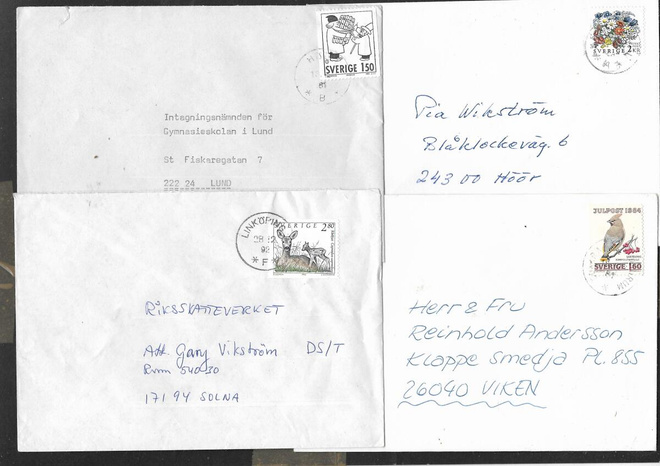 SVERIGE 150
Intagningsnämnden för
Gymnasieskolan i Lund
St Fiskaregatan 7
222 24 LUND
SVERIGE 2 KR
Pia Wikström
Blåklockeväg. 6
243 00 Höör
LINKÖPING
28 12
92
* F *
SVERIGE 2.80
RIKSSKATTEVERKET
Att. Gary Vikström DS/T
Rum 540 30
171 94 SOLNA
JULPOST 1984
SVERIGE 1.60
Herr & Fru
Reinhold Andersson
Klappe Smedja Pl. 855
26040 VIKEN